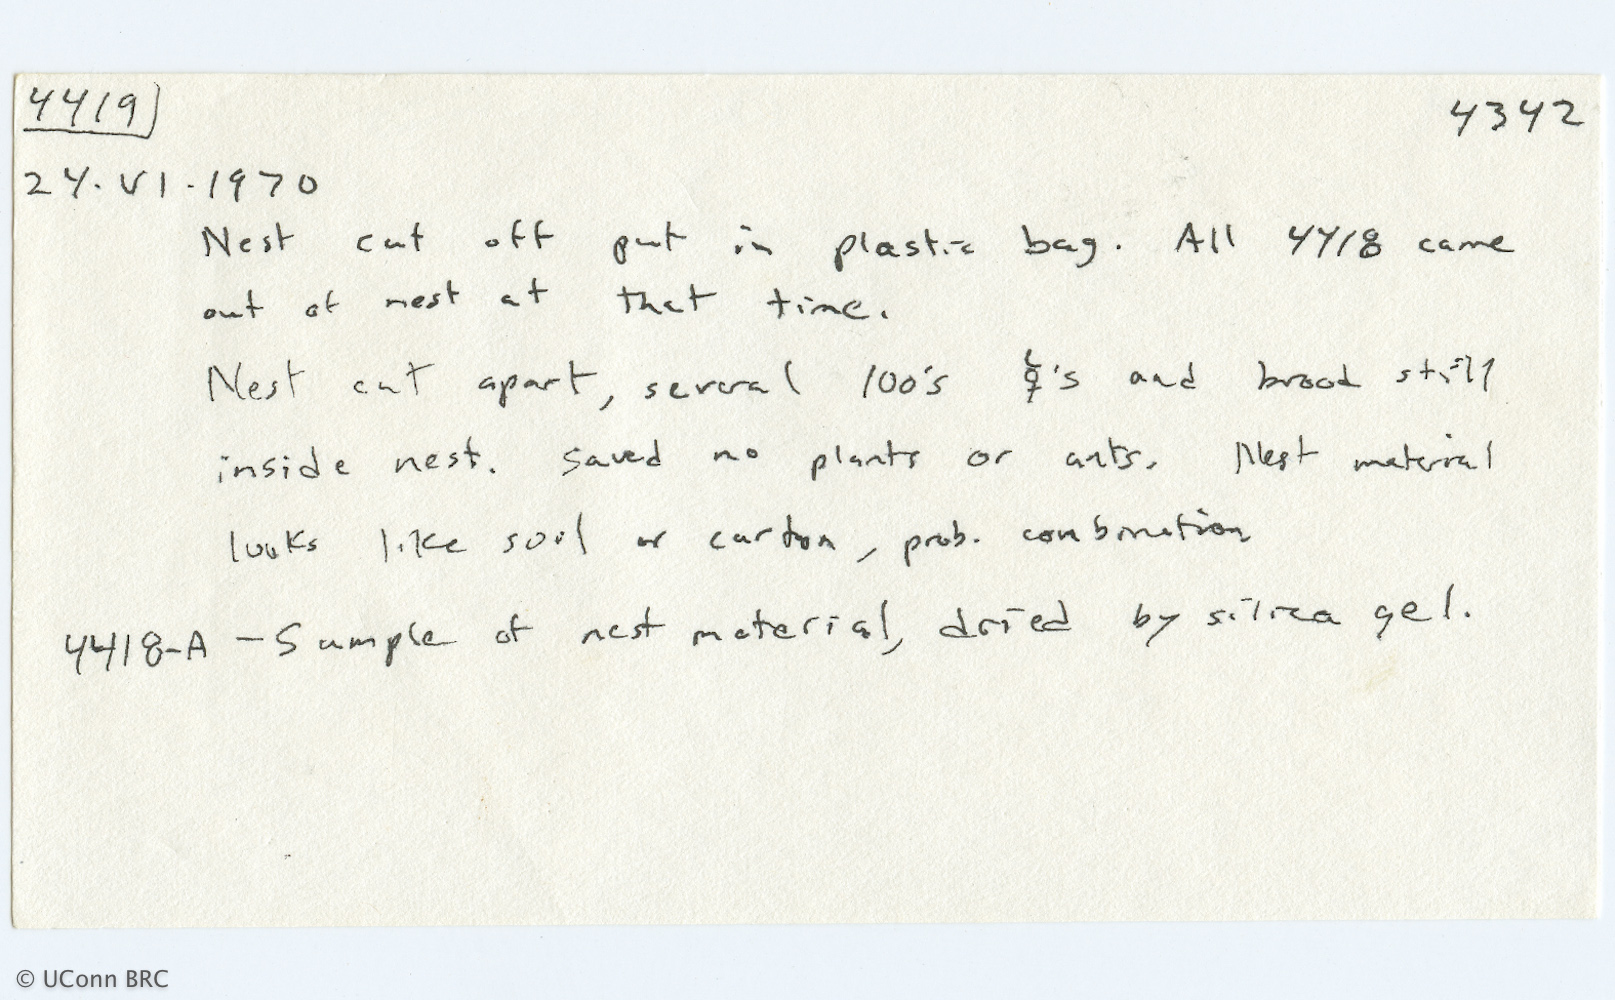 4419 4342
24.VI.1970
Nest cut off put in plastic bag. All 4418 came
out of nest at that time.
Nest cut apart, several 100's ☿'s and brood still
inside nest. Saved no plants or ants. Nest material
looks like soil or carton, prob. combination
4418-A - Sample of nest material, dried by silica gel.
© UConn BRC